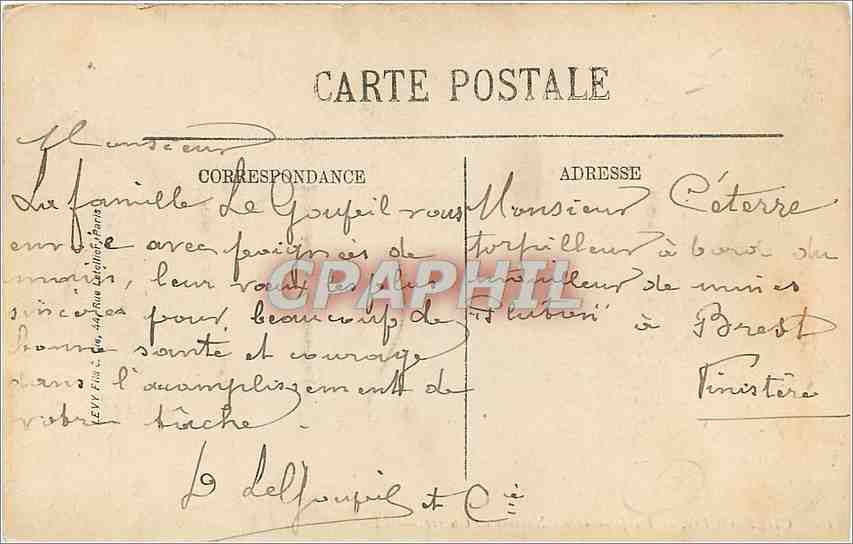 CARTE POSTALE
CORRESPONDANCE
ADRESSE
Monsieur
La famille Le Goupil vous
envoie avec poignées de
main, leur vœux les plus
sincères pour beaucoup de
bonne santé et courage
dans l'acomplissement de
votre tâche.
L LeGoupil et Cie
Monsieur Céterre
torpilleur à bord du
mouilleur de mines
"Pluton" à Brest
Finistère
LEVY Fils & Cie, 44, Rue Letellier, Paris
CPAPHIL